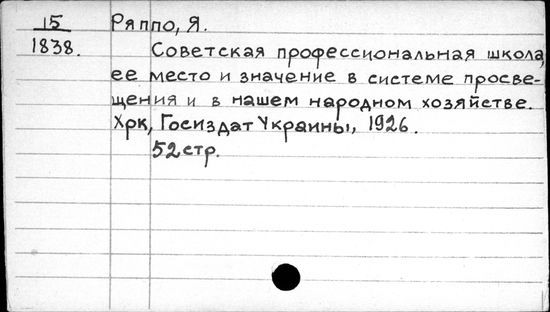 15 Ряппо, Я.
1838. Советская профессиональная школа,
ее место и значение в системе просве-
щения и в нашем народном хозяйстве.
Хрк, Госиздат Украины, 1926.
52 стр.